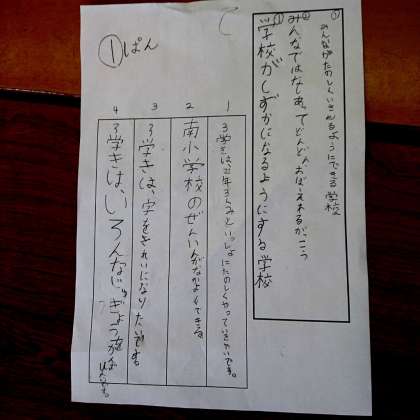 ① みんながたのしくいきれるようにできる学校
② みんなではなしあってどんどんおぼえれるがっこう
① 学校がしずかになるようにする学校
1 3学きは、2年3くみといっしょにたのしくやっていきたいです。
2 南小学校のぜんいんがなかよくできる
3 3学きは、字をきれいになりたいです。
4 3学きは、いろんな
① ぱん